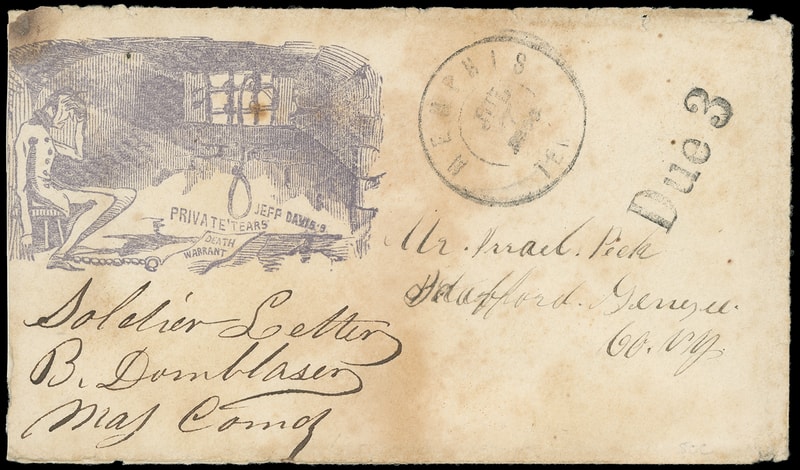 MEMPHIS
TEN
Due 3
PRIVATE TEARS
JEFF DAVIS'S
DEATH
WARRANT
Mr. Israel. Peck
Stafford. Genesee.
Co. NY
Soldier Letter
B. Dornblaser
Maj Comdg